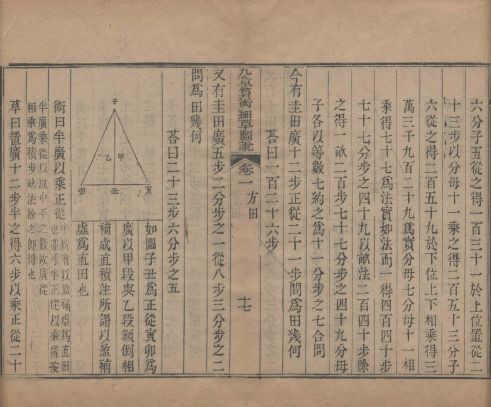 六分子五從之得一百三十一於上位置從二
十三步以分母十一乘之得二百五十三分子
六從之得二百五十九於下位上下相乘得三
萬三千九百二十九為實分母七分母十一相
乘得七十七為法實如法而一得四百四十步
七十七分步之四十九以畝法二百四十步除
之得一畝二百步七十七分步之四十九分母
子各以等數七約之為十一分步之七合問
今有圭田廣十二步正從二十一步問為田幾何
荅曰一百二十六步
九章算術細草圖說
卷一
方田
十七
又有圭田廣五步二分步之一從八步三分步之二
問為田幾何
荅曰二十三步六分步之五
如圖子丑為正從寅卯為
廣以甲段與乙段顛倒相
補成直積注所謂以盈補
虛為直田也
子
甲
乙
卯
丑
寅
術曰半廣以乘正從半廣者以盈補虛為直田
也亦可半正從以乘廣按
半廣乘從以取中平之數故廣從
相乘為積步畝法除之即得也
草曰置廣十二步半之得六步以乘正從二十